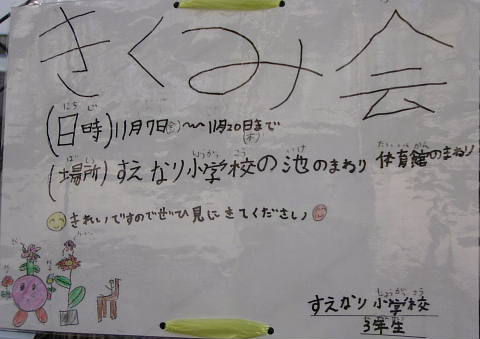 きくみ会
(日時) 11月7日(金)〜11月20日(木)まで
(場所) すえなり小学校の池のまわり 体育館のまわり
きれいですのでぜひ見にきてください♪
すえなり小学校
3年生